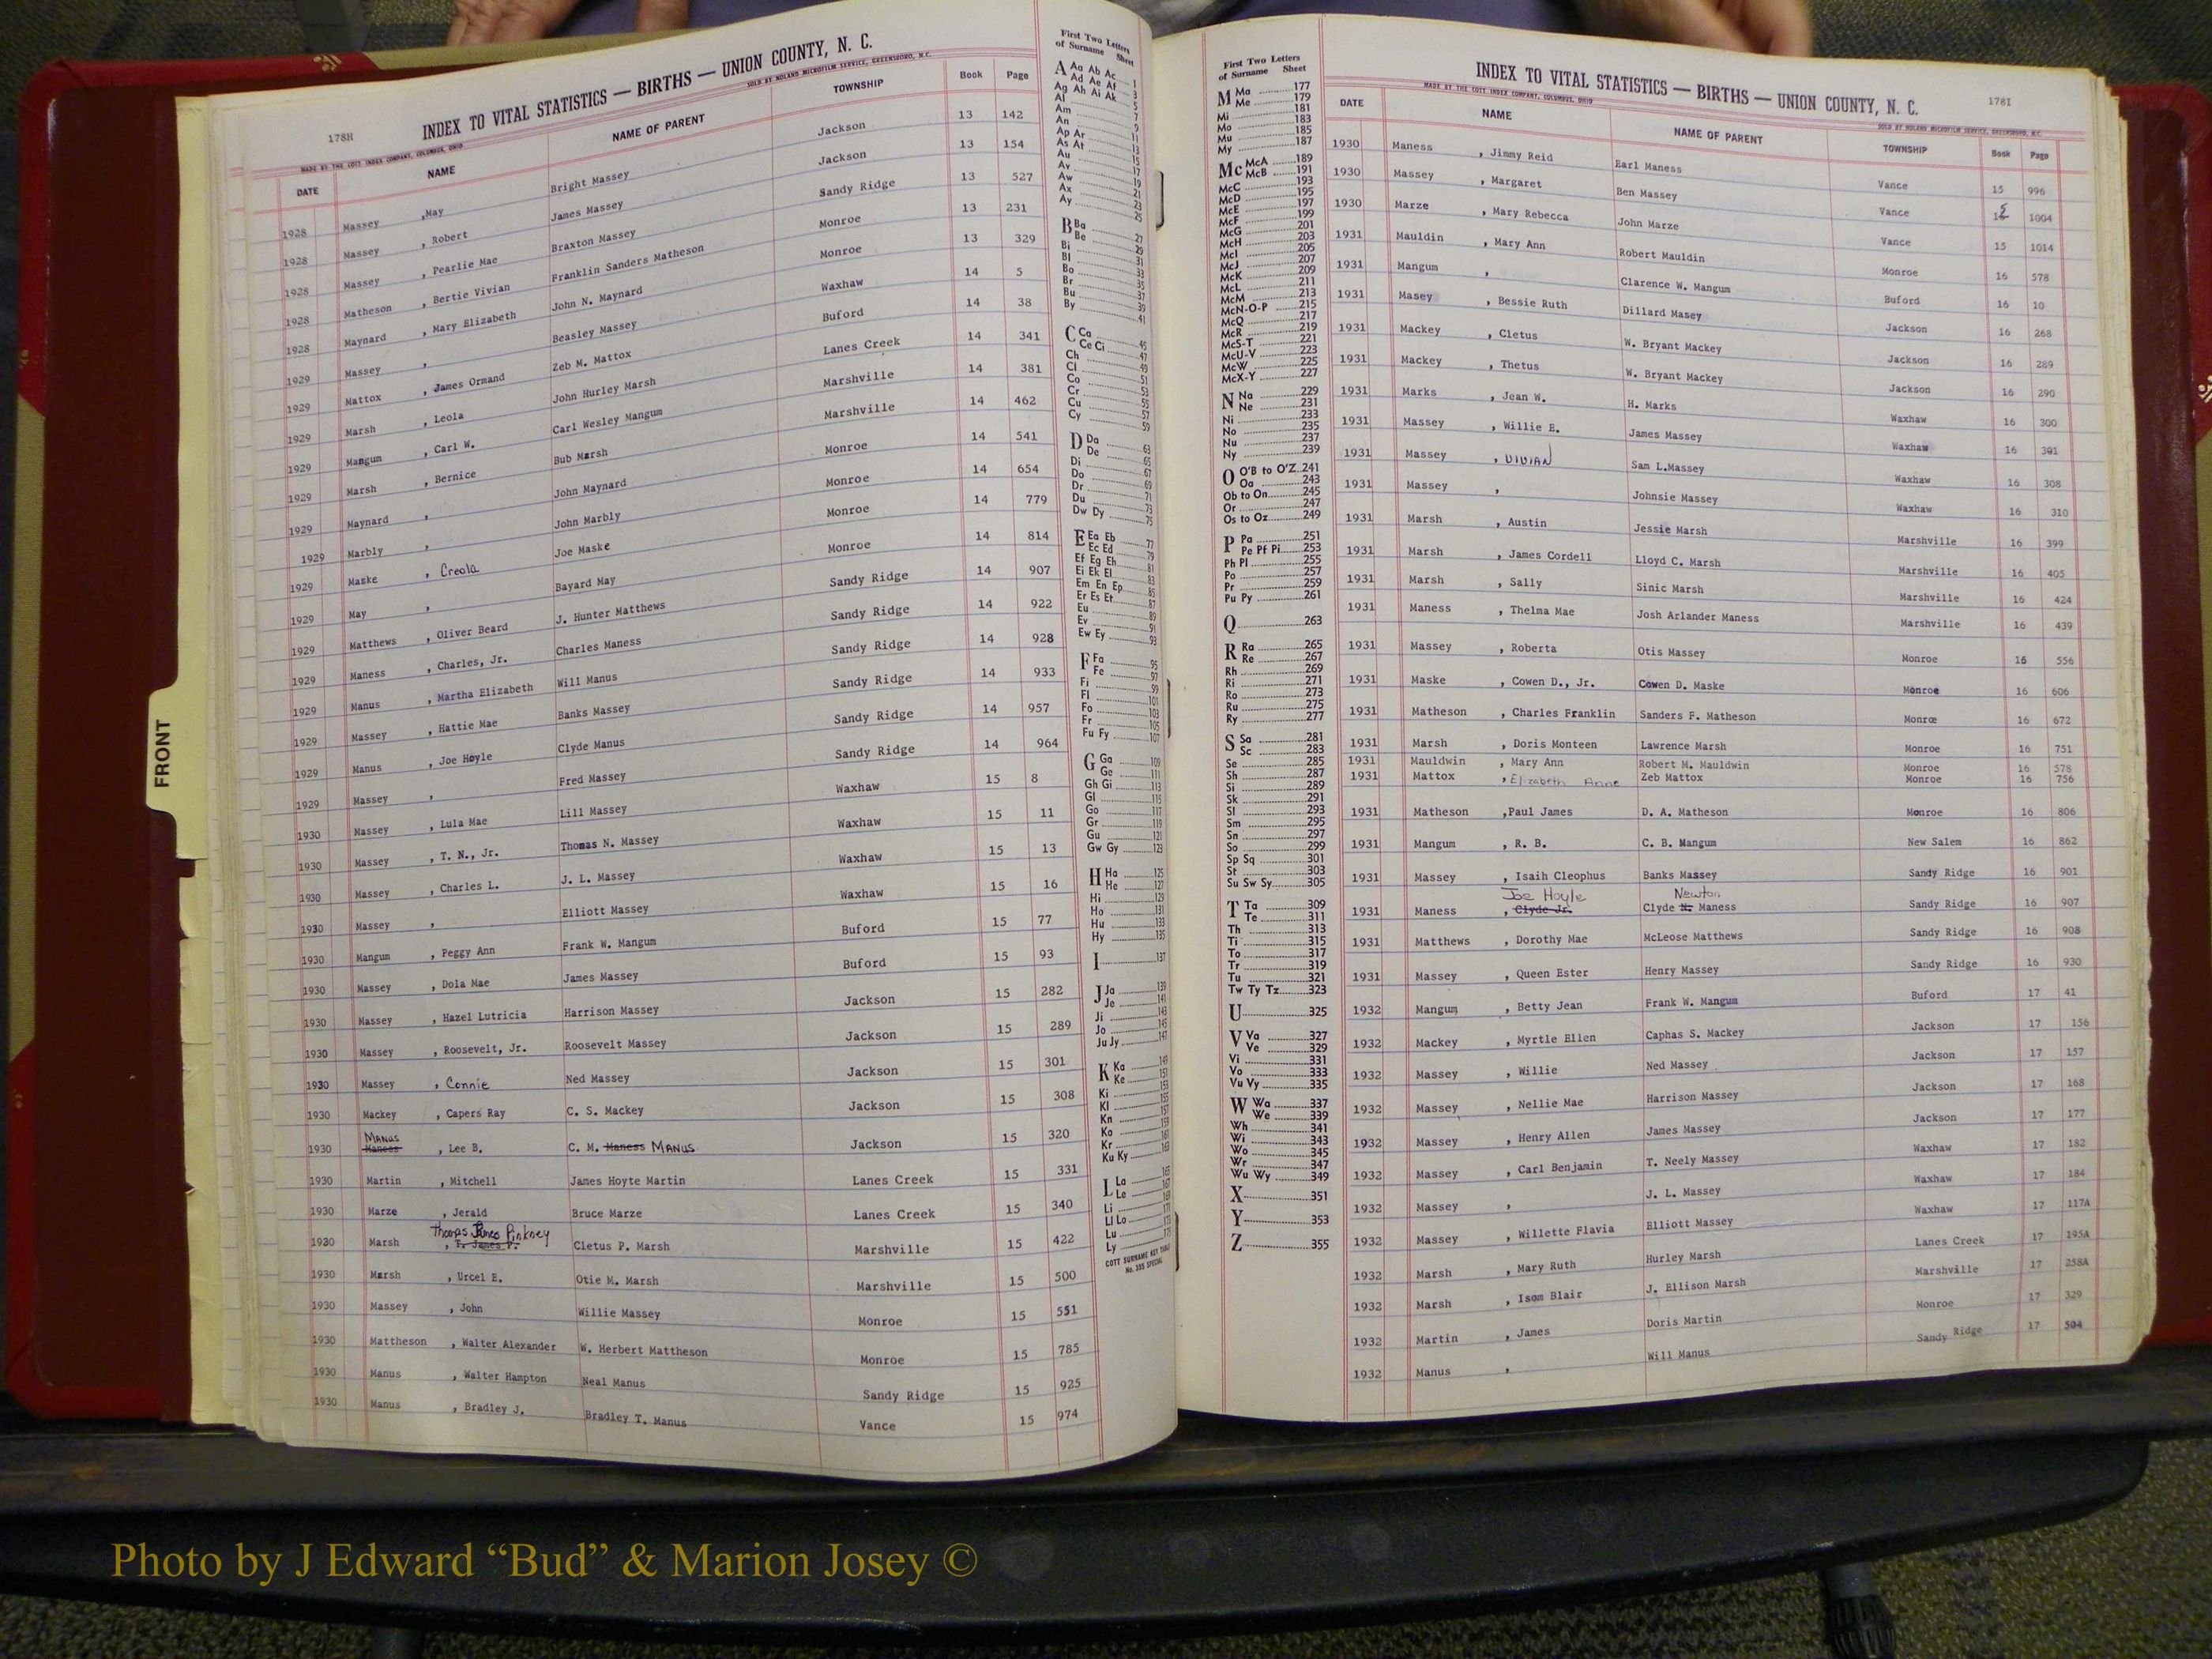 178H
INDEX TO VITAL STATISTICS — BIRTHS — UNION COUNTY, N. C.
MADE BY THE COTT INDEX COMPANY, COLUMBUS, OHIO SOLD BY NOLAND MICROFILM SERVICE, GREENSBORO, N.C.
DATE NAME NAME OF PARENT TOWNSHIP Book Page
1928 Massey ,May Bright Massey Jackson 13 142
1928 Massey , Robert James Massey Jackson 13 154
1928 Massey , Pearlie Mae Braxton Massey Sandy Ridge 13 527
1928 Matheson , Bertie Vivian Franklin Sanders Matheson Monroe 13 231
1928 Maynard , Mary Elizabeth John N. Maynard Monroe 13 329
1929 Massey , Beasley Massey Waxhaw 14 5
1929 Mattox , James Ormand Zeb M. Mattox Buford 14 38
1929 Marsh , Leola John Hurley Marsh Lanes Creek 14 341
1929 Mangum , Carl W. Carl Wesley Mangum Marshville 14 381
1929 Marsh , Bernice Bub Marsh Marshville 14 462
1929 Maynard , John Maynard Monroe 14 541
1929 Marbly , John Marbly Monroe 14 654
1929 Maske , Creola Joe Maske Monroe 14 779
1929 May , Bayard May Monroe 14 814
1929 Matthews , Oliver Beard J. Hunter Matthews Sandy Ridge 14 907
1929 Maness , Charles, Jr. Charles Maness Sandy Ridge 14 922
1929 Manus , Martha Elizabeth Will Manus Sandy Ridge 14 928
1929 Massey , Hattie Mae Banks Massey Sandy Ridge 14 933
1929 Manus , Joe Hoyle Clyde Manus Sandy Ridge 14 957
1929 Massey , Fred Massey Sandy Ridge 14 964
1930 Massey , Lula Mae Lill Massey Waxhaw 15 8
1930 Massey , T. N., Jr. Thomas N. Massey Waxhaw 15 11
1930 Massey , Charles L. J. L. Massey Waxhaw 15 13
1930 Massey , Elliott Massey Waxhaw 15 16
1930 Mangum , Peggy Ann Frank W. Mangum Buford 15 77
1930 Massey , Dola Mae James Massey Buford 15 93
1930 Massey , Hazel Lutricia Harrison Massey Jackson 15 282
1930 Massey , Roosevelt, Jr. Roosevelt Massey Jackson 15 289
1930 Massey , Connie Ned Massey Jackson 15 301
1930 Mackey , Capers Ray C. S. Mackey Jackson 15 308
MANUS
1930 Maness , Lee B. C. M. Maness MANUS Jackson 15 320
1930 Martin , Mitchell James Hoyte Martin Lanes Creek 15 331
1930 Marze , Jerald Bruce Marze Lanes Creek 15 340
Thomas James Pinkney
1930 Marsh , T. James P. Cletus P. Marsh Marshville 15 422
1930 Marsh , Urcel E. Otie M. Marsh Marshville 15 500
1930 Massey , John Willie Massey Monroe 15 551
1930 Mattheson , Walter Alexander W. Herbert Mattheson Monroe 15 785
1930 Manus , Walter Hampton Neal Manus Sandy Ridge 15 925
1930 Manus , Bradley J. Bradley T. Manus Vance 15 974
First Two Letters
of Surname Sheet
A Aa Ab Ac 1
Ad Ae Af 3
Ag Ah Ai Ak 5
Al 7
Am 9
An 11
Ap Ar 13
As At 15
Au 17
Av 19
Aw 21
Ax 23
Ay 25
B Ba 27
Be 29
Bi 31
Bl 33
Bo 35
Br 37
Bu 39
By 41
C Ca 45
Ce Ci 47
Ch 49
Cl 51
Co 53
Cr 55
Cu 57
Cy 59
D Da 63
De 65
Di 67
Do 69
Dr 71
Du 73
Dw Dy 75
E Ea Eb 77
Ec Ed 79
Ef Eg Eh 81
Ei Ek El 83
Em En Ep 85
Er Es Et 87
Eu 89
Ev 91
Ew Ey 93
F Fa 95
Fe 97
Fi 99
Fl 101
Fo 103
Fr 105
Fu Fy 107
G Ga 109
Ge 111
Gh Gi 113
Gl 115
Go 117
Gr 119
Gu 121
Gw Gy 123
H Ha 125
He 127
Hi 129
Ho 131
Hu 133
Hy 135
I 137
J Ja 139
Je 141
Ji 143
Jo 145
Ju Jy 147
K Ka 149
Ke 151
Ki 153
Kl 155
Kn 157
Ko 159
Kr 161
Ku Ky 163
L La 165
Le 167
Li 171
Ll Lo 173
Lu 175
Ly
COTT SURNAME KEY TABLE
No. 355 SPECIAL
FRONT
First Two Letters
of Surname Sheet
M Ma 177
Me 179
Mi 181
Mo 183
Mu 185
My 187
Mc McA 189
McB 191
McC 193
McD 195
McE 197
McF 199
McG 201
McH 203
McI 205
McJ 207
McK 209
McL 211
McM 213
McN-O-P 215
McQ 217
McR 219
McS-T 221
McU-V 223
McW 225
McX-Y 227
N Na 229
Ne 231
Ni 233
No 235
Nu 237
Ny 239
O O'B to O'Z 241
Oa 243
Ob to On 245
Or 247
Os to Oz 249
P Pa 251
Pe Pf Pi 253
Ph Pl 255
Po 257
Pr 259
Pu Py 261
Q 263
R Ra 265
Re 267
Rh 269
Ri 271
Ro 273
Ru 275
Ry 277
S Sa 281
Sc 283
Se 285
Sh 287
Si 289
Sk 291
Sl 293
Sm 295
Sn 297
So 299
Sp Sq 301
St 303
Su Sw Sy 305
T Ta 309
Te 311
Th 313
Ti 315
To 317
Tr 319
Tu 321
Tw Ty Tz 323
U 325
V Va 327
Ve 329
Vi 331
Vo 333
Vu Vy 335
W Wa 337
We 339
Wh 341
Wi 343
Wo 345
Wr 347
Wu Wy 349
X 351
Y 353
Z 355
INDEX TO VITAL STATISTICS — BIRTHS — UNION COUNTY, N. C. 178I
MADE BY THE COTT INDEX COMPANY, COLUMBUS, OHIO SOLD BY NOLAND MICROFILM SERVICE, GREENSBORO, N.C.
DATE NAME NAME OF PARENT TOWNSHIP Book Page
1930 Maness , Jimmy Reid Earl Maness Vance 15 996
1930 Massey , Margaret Ben Massey Vance 15 1004
1930 Marze , Mary Rebecca John Marze Vance 15 1014
1931 Mauldin , Mary Ann Robert Mauldin Monroe 16 578
1931 Mangum , Clarence W. Mangum Buford 16 10
1931 Masey , Bessie Ruth Dillard Masey Jackson 16 268
1931 Mackey , Cletus W. Bryant Mackey Jackson 16 289
1931 Mackey , Thetus W. Bryant Mackey Jackson 16 290
1931 Marks , Jean W. H. Marks Waxhaw 16 300
1931 Massey , Willie E. James Massey Waxhaw 16 301
1931 Massey , VIVIAN Sam L.Massey Waxhaw 16 308
1931 Massey , Johnsie Massey Waxhaw 16 310
1931 Marsh , Austin Jessie Marsh Marshville 16 399
1931 Marsh , James Cordell Lloyd C. Marsh Marshville 16 405
1931 Marsh , Sally Sinic Marsh Marshville 16 424
1931 Maness , Thelma Mae Josh Arlander Maness Marshville 16 439
1931 Massey , Roberta Otis Massey Monroe 16 556
1931 Maske , Cowen D., Jr. Cowen D. Maske Monroe 16 606
1931 Matheson , Charles Franklin Sanders F. Matheson Monroe 16 672
1931 Marsh , Doris Monteen Lawrence Marsh Monroe 16 751
1931 Mauldwin , Mary Ann Robert M. Mauldwin Monroe 16 578
1931 Mattox , Elizabeth Anne Zeb Mattox Monroe 16 756
1931 Matheson ,Paul James D. A. Matheson Monroe 16 806
1931 Mangum , R. B. C. B. Mangum New Salem 16 862
1931 Massey , Isaih Cleophus Banks Massey Sandy Ridge 16 901
Joe Hoyle Newton
1931 Maness , Clyde Jr. Clyde N. Maness Sandy Ridge 16 907
1931 Matthews , Dorothy Mae McLeose Matthews Sandy Ridge 16 908
1931 Massey , Queen Ester Henry Massey Sandy Ridge 16 930
1932 Mangum , Betty Jean Frank W. Mangum Buford 17 41
1932 Mackey , Myrtle Ellen Caphas S. Mackey Jackson 17 156
1932 Massey , Willie Ned Massey Jackson 17 157
1932 Massey , Nellie Mae Harrison Massey Jackson 17 168
1932 Massey , Henry Allen James Massey Jackson 17 177
1932 Massey , Carl Benjamin T. Neely Massey Waxhaw 17 182
1932 Massey , J. L. Massey Waxhaw 17 184
1932 Massey , Willette Flavia Elliott Massey Waxhaw 17 117A
1932 Marsh , Mary Ruth Hurley Marsh Lanes Creek 17 195A
1932 Marsh , Isom Blair J. Ellison Marsh Marshville 17 258A
1932 Martin , James Doris Martin Monroe 17 329
1932 Manus , Will Manus Sandy Ridge 17 504
Photo by J Edward “Bud” & Marion Josey ©